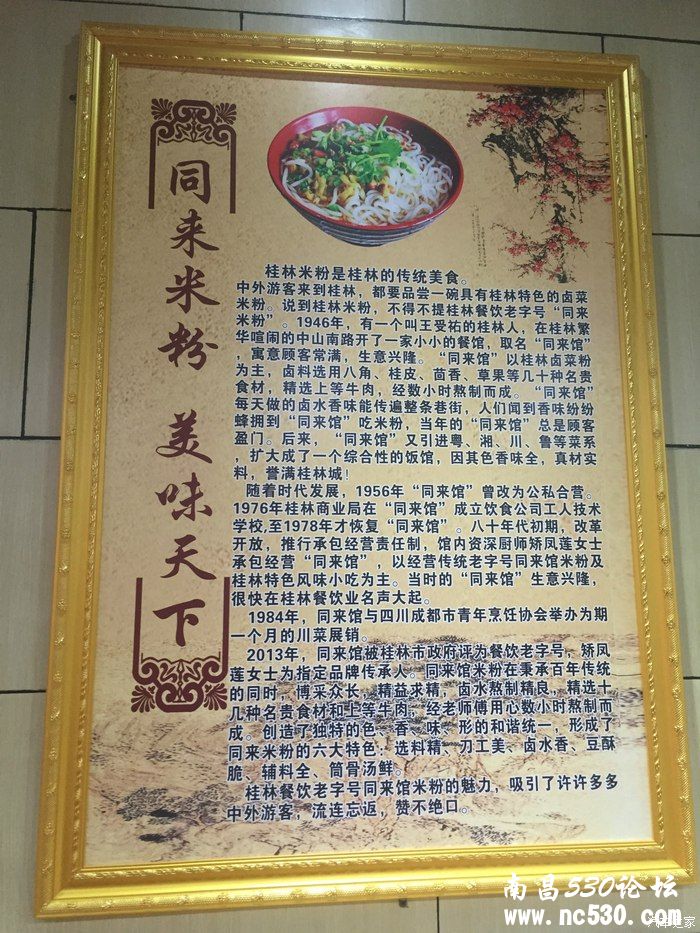 同来米粉 美味天下
桂林米粉是桂林的传统美食。
中外游客来到桂林，都要品尝一碗具有桂林特色的卤菜
米粉。说到桂林米粉，不得不提桂林餐饮老字号“同来
米粉”。1946年，有一个叫王受祐的桂林人，在桂林繁
华喧闹的中山南路开了一家小小的餐馆，取名“同来馆”
，寓意顾客常满，生意兴隆。“同来馆”以桂林卤菜粉
为主，卤料选用八角、桂皮、茴香、草果等几十种名贵
食材，精选上等牛肉，经数小时熬制而成。“同来馆”
每天做的卤水香味能传遍整条巷街，人们闻到香味纷纷
蜂拥到“同来馆”吃米粉，当年的“同来馆”总是顾客
盈门。后来，“同来馆”又引进粤、湘、川、鲁等菜系
，扩大成了一个综合性的饭馆，因其色香味全，真材实
料，誉满桂林城！
随着时代发展，1956年“同来馆”曾改为公私合营。
1976年桂林商业局在“同来馆”成立饮食公司工人技术
学校，至1978年才恢复“同来馆”。八十年代初期，改革
开放，推行承包经营责任制，馆内资深厨师矫凤莲女士
承包经营“同来馆”，以经营传统老字号同来馆米粉及
桂林特色风味小吃为主。当时的“同来馆”生意兴隆，
很快在桂林餐饮业名声大起。
1984年，同来馆与四川成都市青年烹饪协会举办为期
一个月的川菜展销。
2013年，同来馆被桂林市政府评为餐饮老字号，矫凤
莲女士为指定品牌传承人。同来馆米粉在秉承百年传统
的同时，博采众长，精益求精，卤水熬制精良，精选十
几种名贵食材和上等牛肉，经老师傅用心数小时熬制而
成。创造了独特的色、香、味、形的和谐统一，形成了
同来米粉的六大特色：选料精、刀工美、卤水香、豆酥
脆、辅料全、筒骨汤鲜。
桂林餐饮老字号同来馆米粉的魅力，吸引了许许多多
中外游客，流连忘返，赞不绝口。
南昌530论坛
www.nc530.com
汽车之家